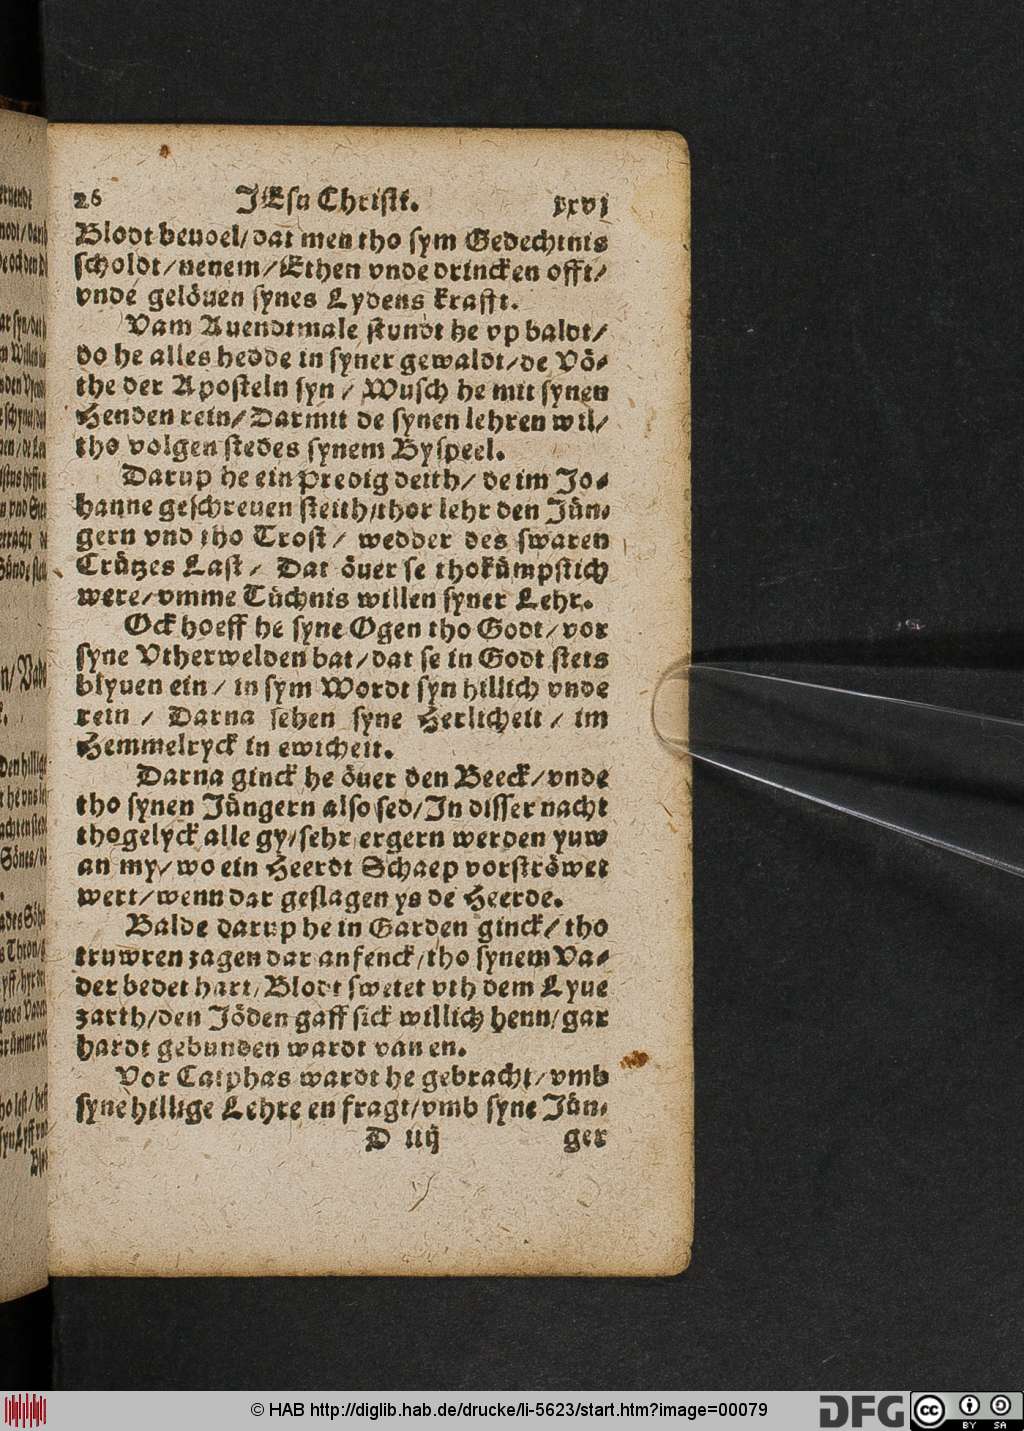 26 JEsu Christi. xxvj
Blodt beuoel/dat men tho sym Gedechtnis
scholdt/nenem/Ethen vnde drincken offt/
vnde gelöuen synes Lydens krafft.
Vam Auendtmale stundt he vp baldt/
do he alles hedde in syner gewaldt/de Vö-
the der Aposteln syn / Wusch he mit synen
Henden rein/Darmit de synen lehren wil/
tho volgen stedes synem Byspeel.
Darup he ein Predig deith/ de im Jo-
hanne geschreuen steith/thor lehr den Jün-
gern vnd tho Trost/ wedder des swaren
Crützes Last/ Dat öuer se thokümpstich
were/vmme Tüchnis willen syner Lehr.
Ock hoeff he syne Ogen tho Godt/vor
syne Vtherwelden bat/dat se in Godt stets
blyuen ein/ in sym Wordt syn hillich vnde
rein / Darna sehen syne Herlicheit/ im
Hemmelryck in ewicheit.
Darna ginck he öuer den Beeck/vnde
tho synen Jüngern also sed/In disser nacht
thogelyck alle gy/sehr ergern werden yuw
an my/wo ein Heerdt Schaep vorströwet
wert/wenn dar geslagen ys de Heerde.
Balde darup he in Garden ginck/ tho
truwren zagen dar anfenck/tho synem Va-
der bedet hart/Blodt swetet vth dem Lyue
zarth/den Jöden gaff sick willich henn/gar
hardt gebunden wardt van en.
Vor Caiphas wardt he gebracht/vmb
syne hillige Lehre en fragt/vmb syne Jün-
D iij ger
© HAB http://diglib.hab.de/drucke/li-5623/start.htm?image=00079
DFG
cc BY SA